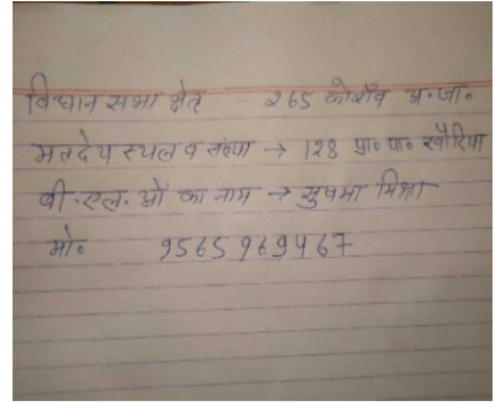 विधान सभा क्षेत्र - 265 कोराँव अ॰जा॰
मतदेय स्थल व संख्या → 128 प्रा॰ पा॰ खौरिया
बी.एल.ओं का नाम → सुषमा मिश्रा
मो॰ 9565969467